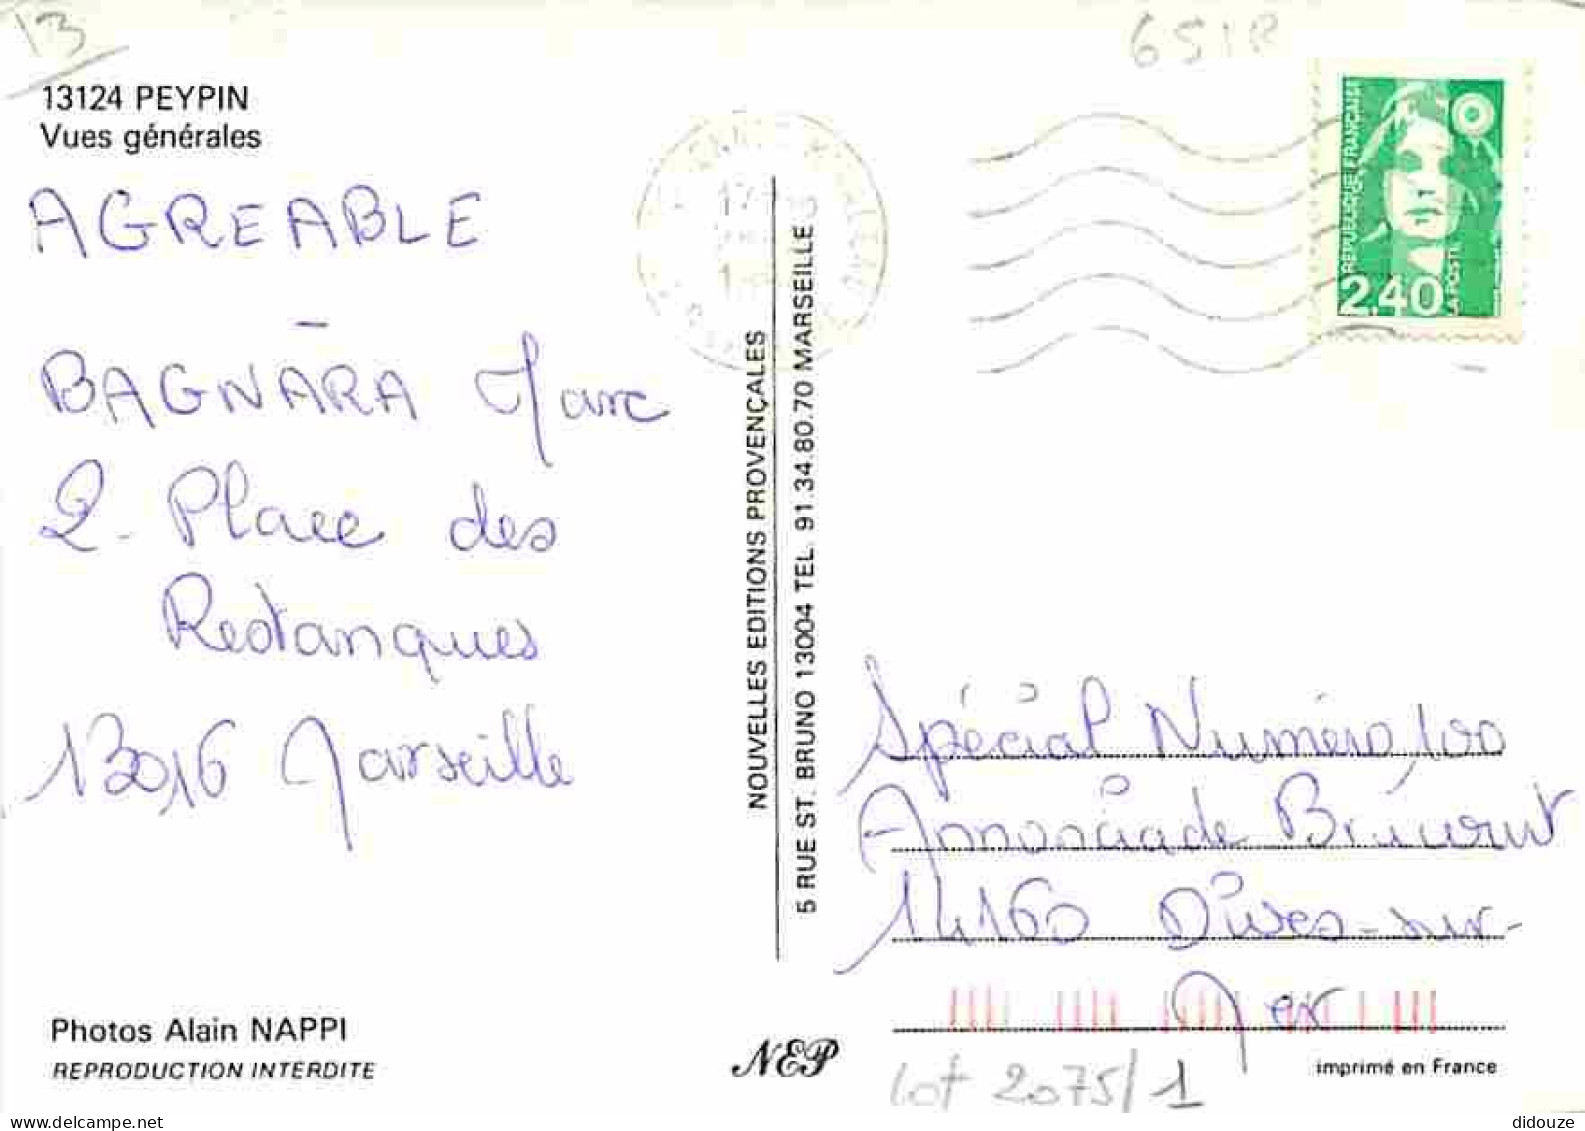 13
651R
13124 PEYPIN
Vues générales
AGREABLE
BAGNARA Marc
2. Place des
Restanques
13016 Marseille
Photos Alain NAPPI
REPRODUCTION INTERDITE
NOUVELLES EDITIONS PROVENÇALES
5 RUE ST. BRUNO 13004 TEL. 91.34.80.70 MARSEILLE
NEP
REPUBLIQUE FRANÇAISE
2.40
LA POSTE
Spécial Numéro 100
14160 Dives-sur-
Mer
imprimé en France
Lot 2075/1
didouze